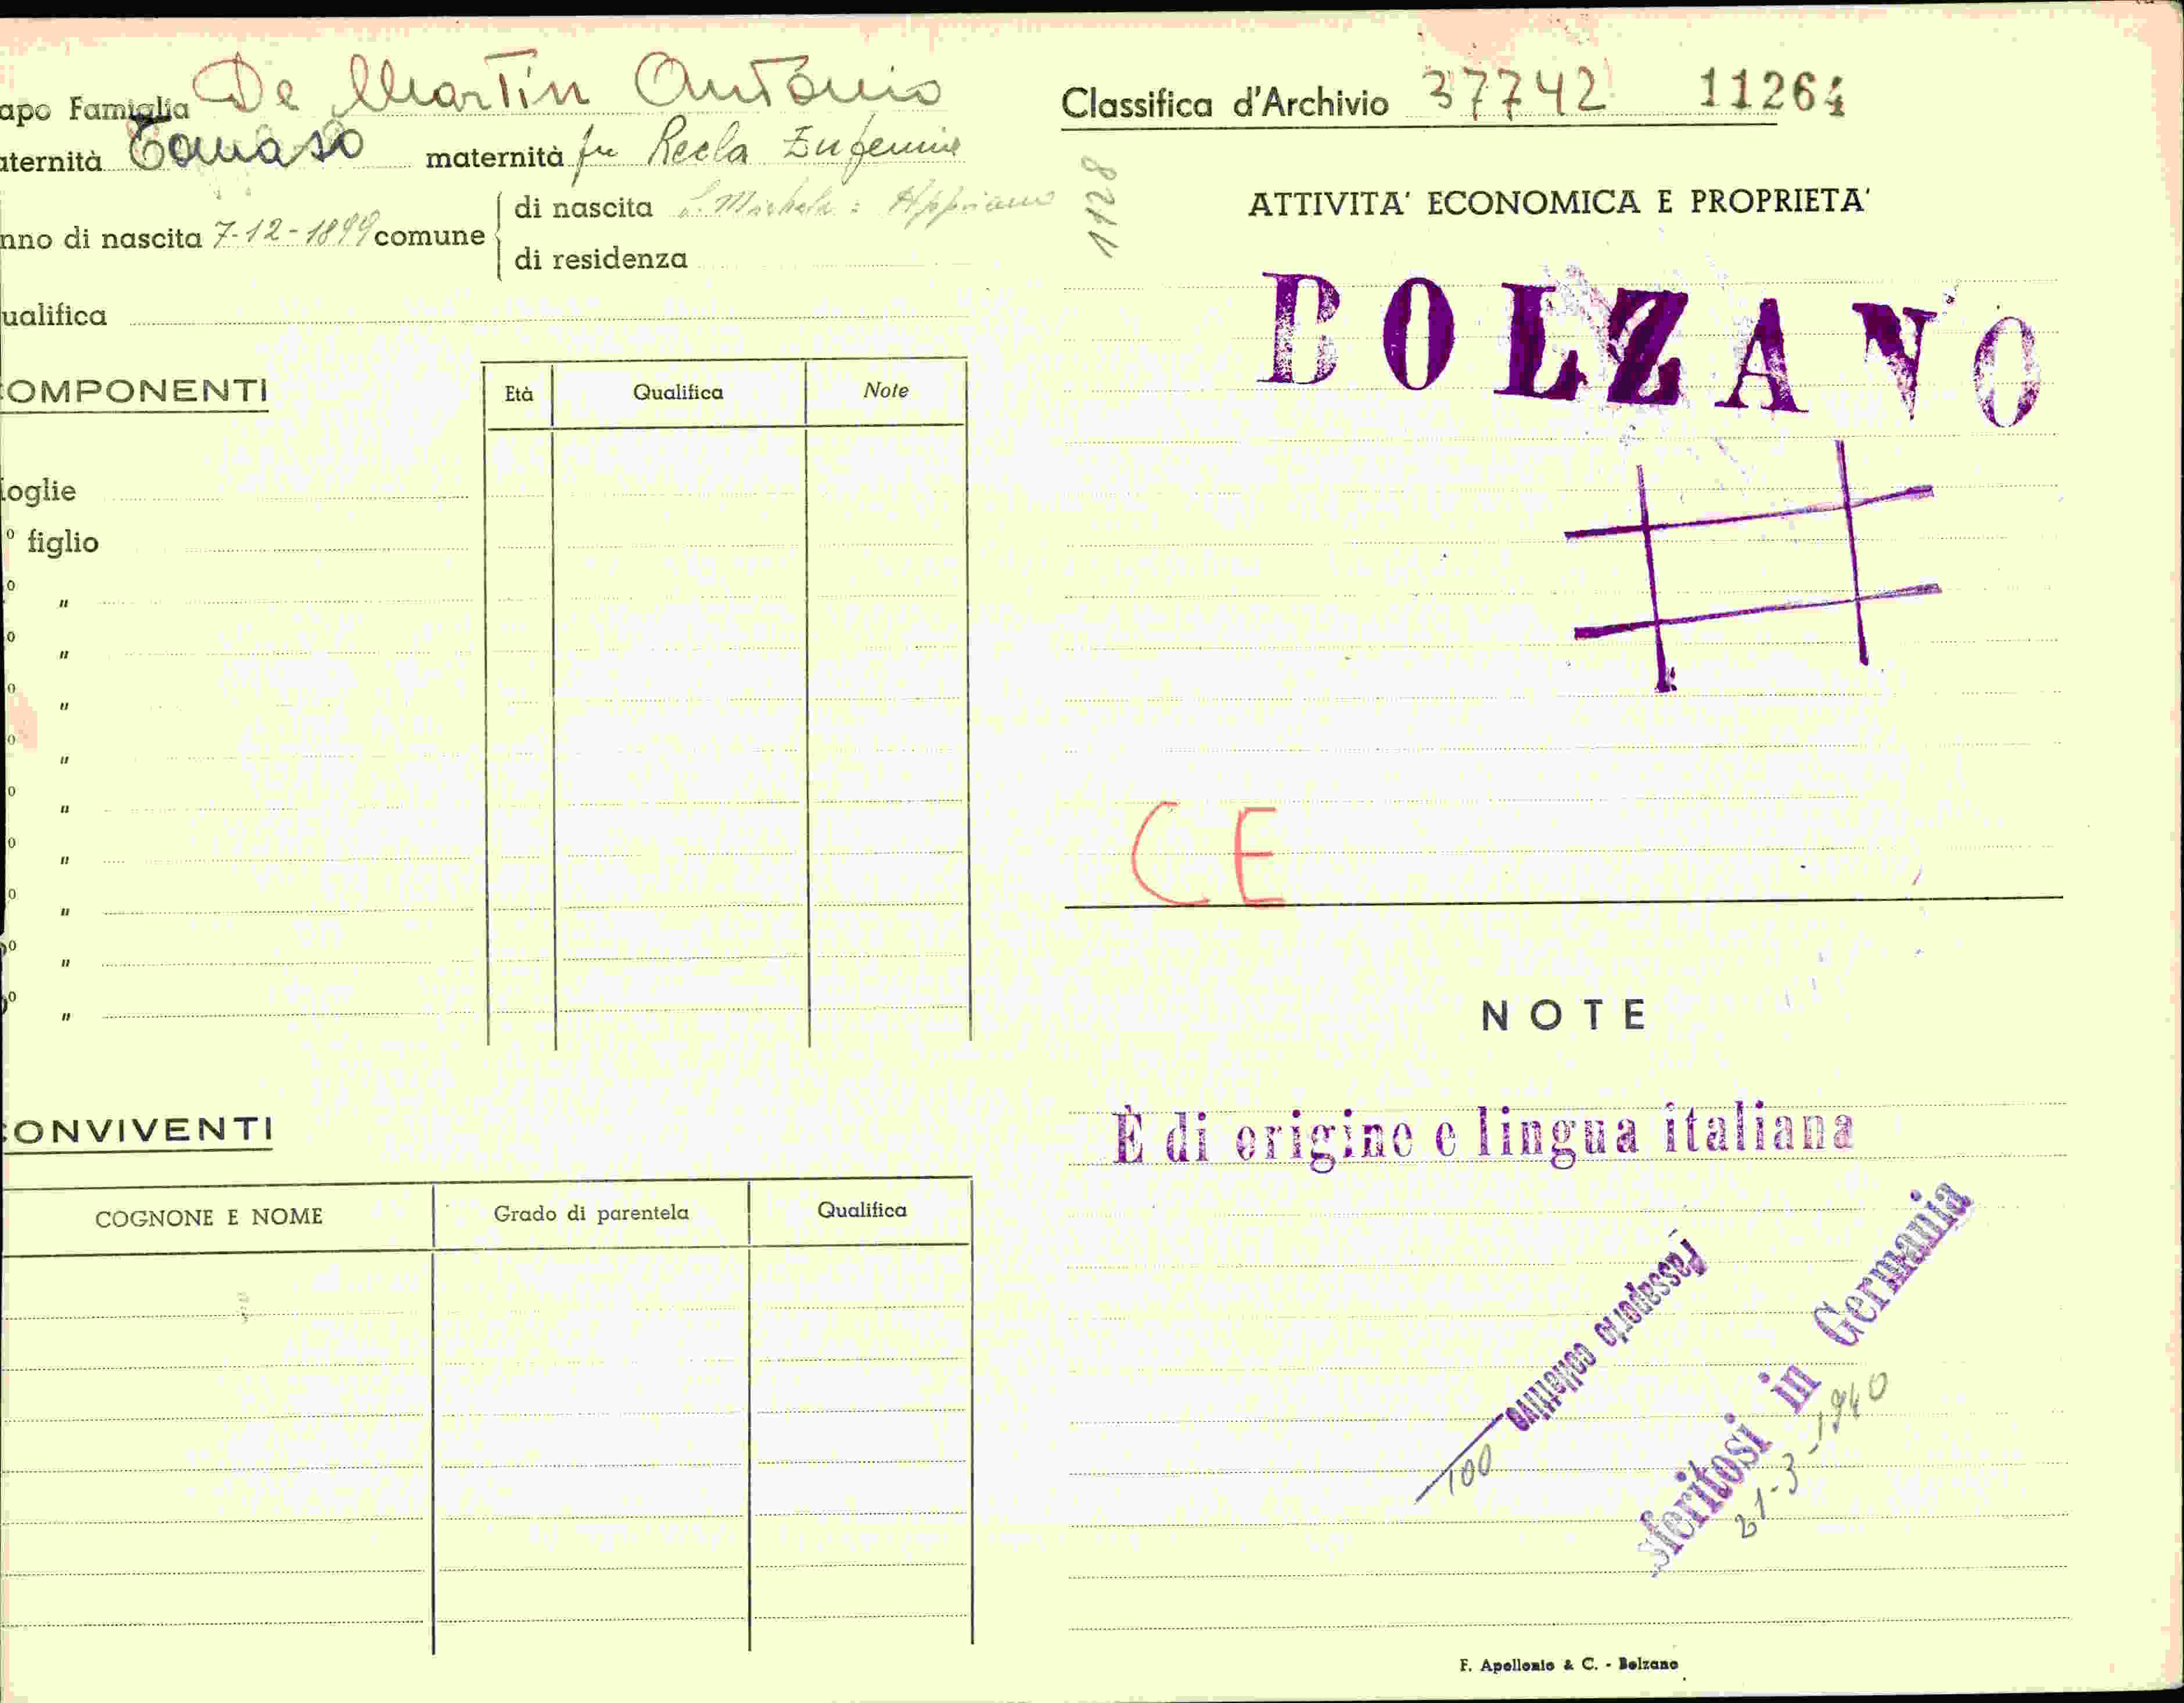 apo Famiglia De Martin Antonio
aternità Tomaso maternità fu Recla Eufemia
nno di nascita 7-12-1899 comune di nascita S. Michele : Appiano
di residenza
ualifica
COMPONENTI
Età Qualifica Note
oglie
° figlio
° "
° "
° "
° "
° "
° "
° "
° "
° "
CONVIVENTI
COGNONE E NOME Grado di parentela Qualifica
Classifica d'Archivio 37742 11264
1128
ATTIVITA' ECONOMICA E PROPRIETA'
BOLZANO
CE
NOTE
È di origine e lingua italiana
Passaporto collettivo
100
sferitosi in Germania
21-3-1940
F. Apollonio & C. - Bolzano